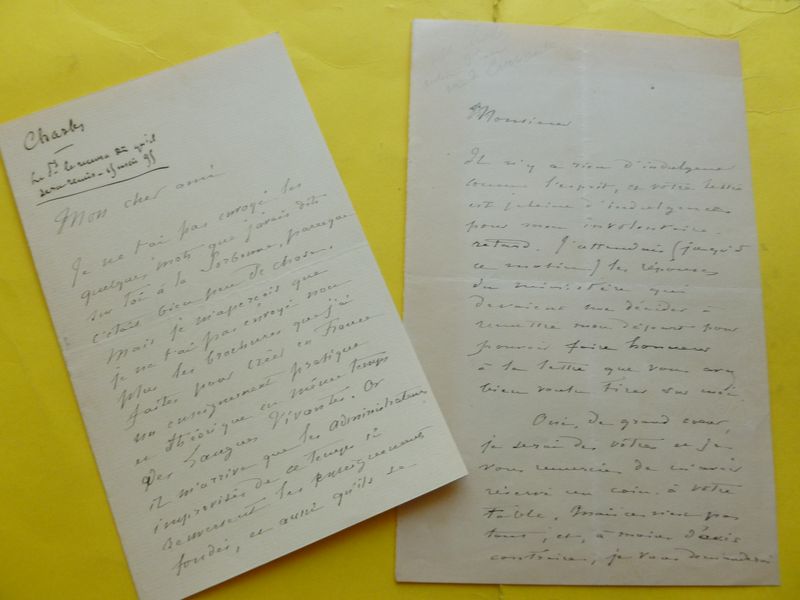 Charles
Mon cher ami
Je ne t'ai pas envoyé les
quelques mots que j'avais dits
sur toi à la Sorbonne, parceque
c'était bien peu de chose,
Mais je m'aperçois que
je ne t'ai pas envoyé non
plus les brochures que j'ai
faites pour créer en France
un enseignement pratique
et théorique en même temps
des Langues Vivantes. Or
il m'arrive que les administrateurs
improvisés de ce temps-ci
renversent les enseignements
fondés, et aussi qu'ils se
Monsieur
Il n'y a rien d'indulgent
comme l'esprit, et votre lettre
est pleine d'indulgence
pour mon involontaire
retard. J'attendais (jusqu'à
ce matin) les réponses
du ministère qui
devaient me décider à
remettre mon départ pour
pouvoir faire honneur
à la lettre que vous avez
bien voulu tirer sur moi.
Oui, de grand cœur,
je serai des vôtres et je
vous remercie de m'avoir
réservé un coin à votre
table, mais ce n'est pas
tout, et, à moins d'avis
contraire, je vous demanderai